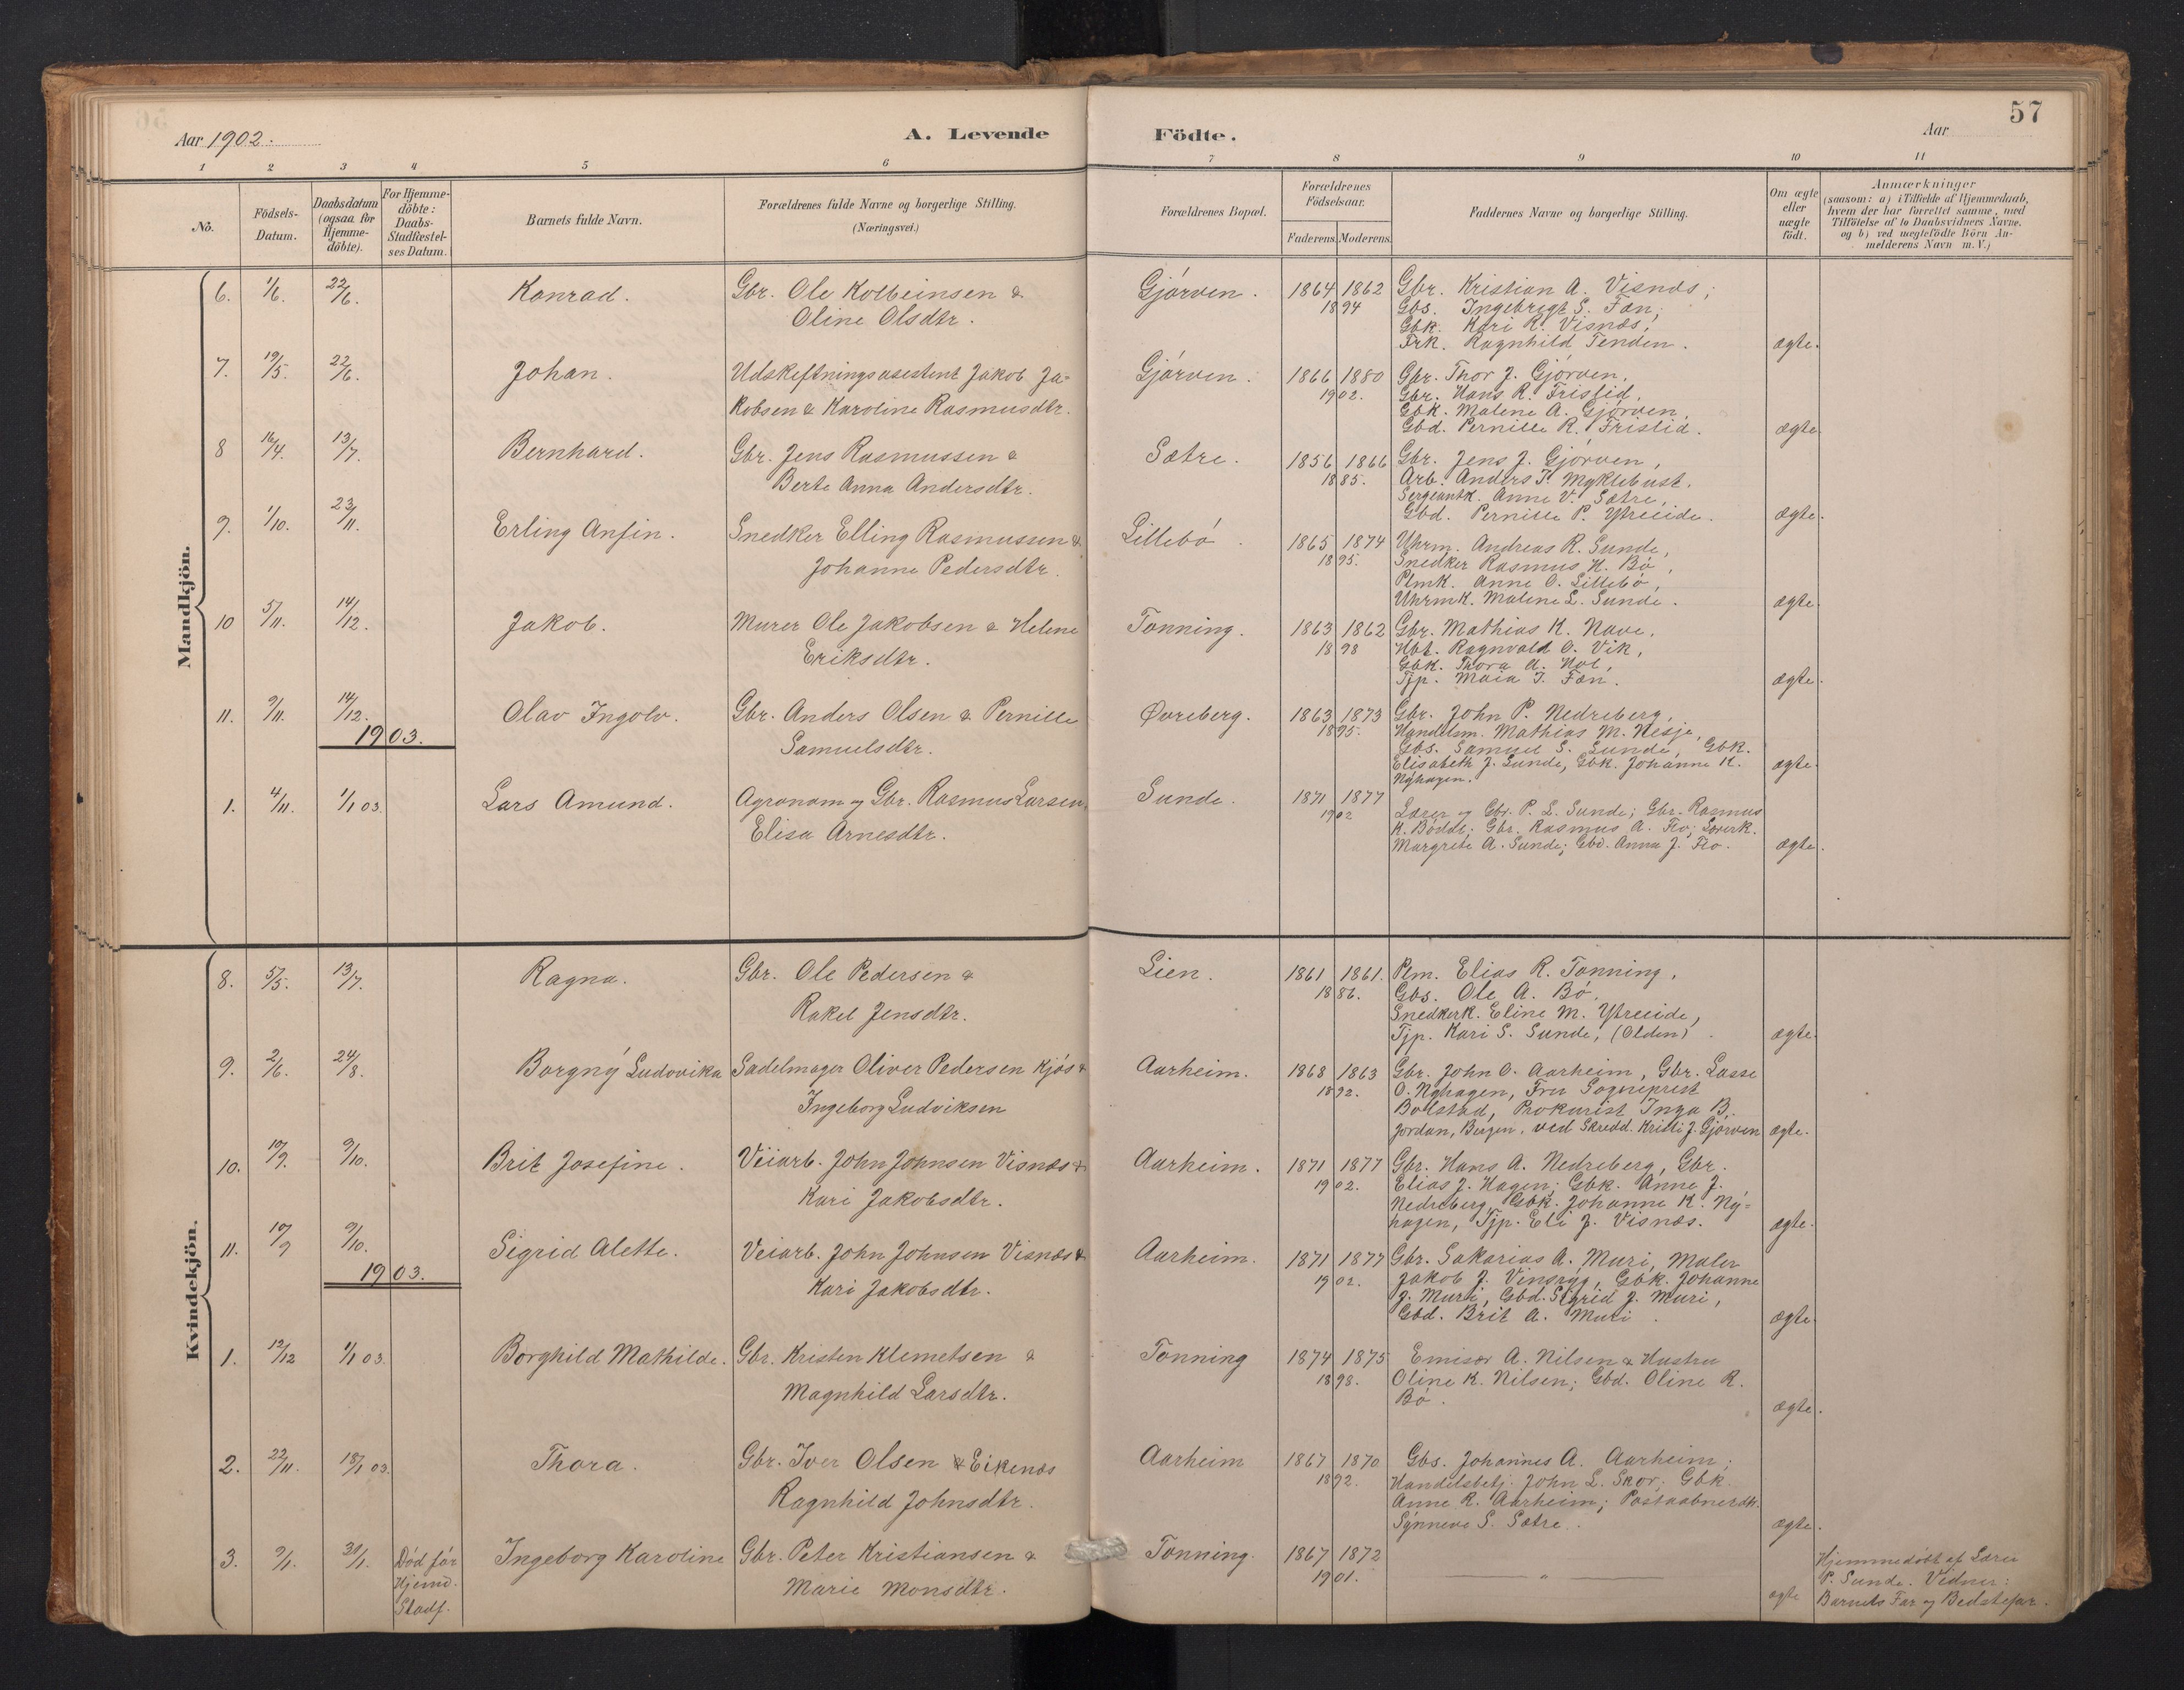 57
Aar 1902.
A. Levende Födte.
Aar
1 2 3 4 5 6 7 8 9 10 11
No.
Födsels-Datum.
Daabsdatum (ogsaa for Hjemme-döbte).
For Hjemme-döbte: Daabs-Stadfæstel-ses Datum.
Barnets fulde Navn.
Forældrenes fulde Navne og borgerlige Stilling.
(Næringsvei.)
Forældrenes Bopæl.
Forældrenes Födselsaar.
Faderens. Moderens.
Faddernes Navne og borgerlige Stilling.
Om ægte eller uægte födt.
Anmærkninger
(saasom: a) i Tilfælde af Hjemmedaab,
hvem der har forrettet samme, med
Tilföielse af to Daabsvidners Navne,
og b) ved uægtefödte Börn An-
melderens Navn m. V.)
Mandkjön.
6. 1/6. 22/6. Konrad. Gbr. Ole Kolbeinsen & Gjørven. 1864 1862 Gbr. Kristian A. Visnæs;
Oline Olsdtr. 1894 Gbs. Ingebrigt S. Fæn;
Gbk. Kari R. Visnæs;
Frk. Ragnhild Tenden. ægte.
7. 19/5. 22/6. Johan. Udskiftningsasistent Jakob Ja- Gjørven. 1866 1880 Gbr. Thor J. Gjørven,
kobsen & Karoline Rasmusdtr. 1902. Gbr. Hans R. Frislid,
Gbk. Malene A. Gjørven,
Gbd. Pernille R. Frislid. ægte
8 16/4. 13/7. Bernhard. Gbr. Jens Rasmussen & Sætre. 1856 1866 Gbr. Jens J. Gjørven,
Berte Anna Andersdtr. 1885. Arb. Anders J. Myklebust,
Sergeantk. Anne V. Sætre,
Gbd. Pernille P. Ytreeide. ægte.
9. 1/10. 23/11. Erling Anfin. Snedker Elling Rasmussen & Lillebø. 1865 1874 Uhrm. Andreas R. Sunde,
Johanne Pedersdtr. 1895. Snedker Rasmus H. Bø,
Plmk. Anne O. Lillebø,
Uhrmk. Malene L. Sunde. ægte.
10 5/11. 14/12. Jakob. Murer Ole Jakobsen & Helene Tonning. 1863 1862 Gbr. Mathias K. Nave,
Eriksdtr. 1898 Hbt. Ragnvald O. Vik,
Gbk. Thora A. Hol,
Tjp. Maia J. Fæn. ægte.
11. 9/11. 14/12. Olav Ingolv. Gbr. Anders Olsen & Pernille Øvreberg. 1863 1873 Gbr. John P. Nedreberg,
1903. Samuelsdtr. 1895. Handelsm. Mathias M. Nesje,
Gbs. Samuel S. Sunde, Gbk.
Elisabeth J. Sunde, Gbk. Johanne K. ægte.
Nyhagen.
1. 4/11. 1/1 03. Lars Amund. Agronom og Gbr. Rasmus Larsen, Sunde. 1871 1877 Lærer og Gbr. P. L. Sunde; Gbr. Rasmus
Elisa Arnesdtr. 1902 K. Bødde; Gbr. Rasmus A. Flo; Lærerk.
Margrete A. Sunde; Gbd. Anna J. Flo. ægte.
Kvindekjön.
8. 5/5. 13/7. Ragna. Gbr. Ole Pedersen & Lien. 1861 1861. Plm. Elias R. Tonning,
Rakel Jensdtr. 1886. Gbs. Ole A. Bø,
Snedkerk. Eline M. Ytreeide,
Tjp. Kari S. Sunde, (Olden). ægte.
9. 2/6. 24/8. Borgny Ludovika Sadelmager Oliver Pedersen Kjøs & Aarheim. 1868 1863 Gbr. John O. Aarheim, Gbr. Lasse
Ingeborg Ludviksen 1892. O. Nyhagen, Fru Sogneprest
Bolstad, Prokurist Inga B.
Jordan, Bergen, ved Skredd. Kristi J. Gjørven ægte.
10. 19/9. 9/10. Brit Josefine. Veiarb. John Johnsen Visnæs & Aarheim. 1871 1877 Gbr. Hans A. Nedreberg, Gbr.
Kari Jakobsdtr. 1902. Elias J. Hagen; Gbk. Anne J.
Nedreberg, Gbk. Johanne K. Ny-
hagen, Tjp. Eli J. Visnæs. ægte.
11. 19/9 9/10. Sigrid Alette. Veiarb. John Johnsen Visnæs & Aarheim. 1871 1877 Gbr. Sakarias A. Muri, Maler
1903. Kari Jakobsdtr. 1902. Jakob J. Vinsryg, Gbk. Johanne
J. Muri, Gbd. Sigrid J. Muri,
Gbd. Brit A. Muri. ægte.
1. 12/12 1/1 03. Borghild Mathilde. Gbr. Kristen Klemetsen & Tonning 1874 1875 Emisær A. Nilsen & Hustru
Magnhild Larsdtr. 1898. Oline K. Nilsen; Gbd. Oline R.
Bø. ægte.
2. 22/11. 18/1 03. Thora. Gbr. Iver Olsen & Eikenæs Aarheim 1867 1870 Gbs. Johannes A. Aarheim;
Ragnhild Johnsdtr. 1892. Handelsbetj. John L. Skor; Gbk.
Anne R. Aarheim; Postaabnerdtr.
Synneve S. Sætre. ægte.
3. 9/1. 31/1. Død før Ingeborg Karoline Gbr. Peter Kristiansen & Tonning. 1867 1872 — " — Hjemmedøbt af Lærer
Hjemd. Marie Monsdtr. 1901. P. Sunde. Vidner:
Stadf. ægte Barnets Far og Bedstefar.